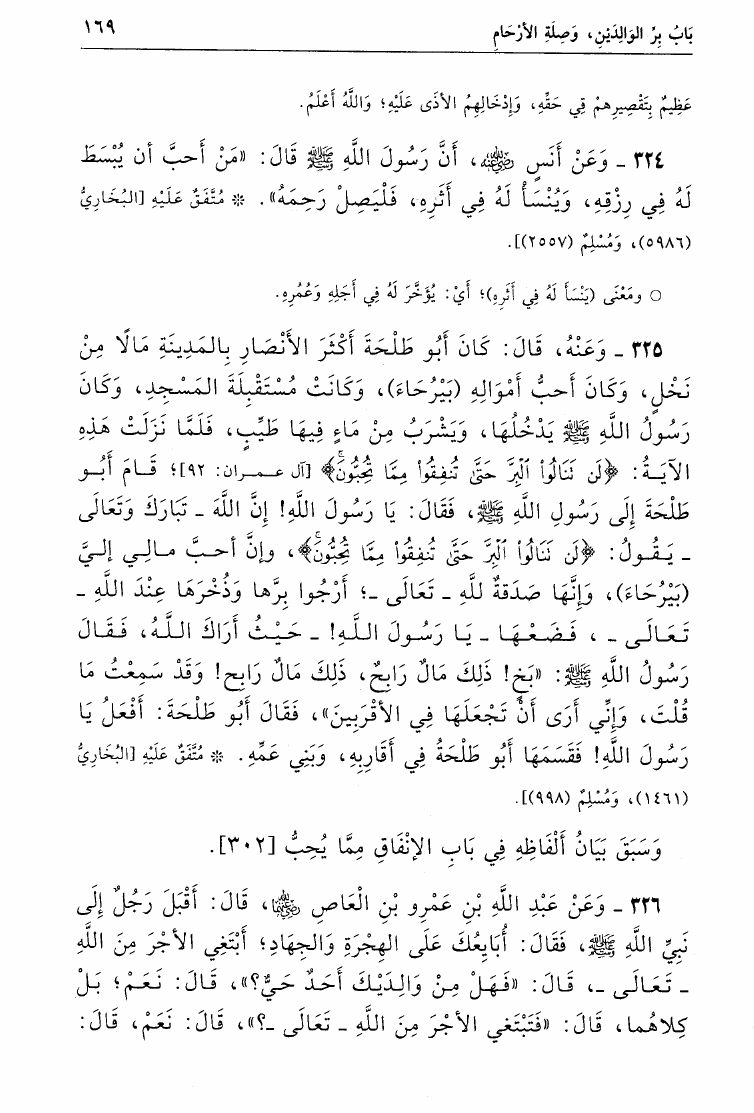 بَابُ بِرِّ الوَالِدَيْنِ، وَصِلَةِ الأَرْحَامِ ١٦٩
عَظِيمٌ بِتَقْصِيرِهِمْ فِي حَقِّهِ، وَإِدْخَالِهِمُ الأَذَى عَلَيْهِ؛ وَاللَّهُ أَعْلَمُ.
٣٢٤ ـ وَعَنْ أَنَسٍ رضي الله عنه، أَنَّ رَسُولَ اللَّهِ ﷺ قَالَ: «مَنْ أَحبَّ أن يُبْسَطَ
لَهُ فِي رِزْقِهِ، وَيُنْسَأُ لَهُ فِي أَثَرِهِ، فَلْيَصِلْ رَحِمَهُ». * مُتَّفَقٌ عَلَيْهِ [البُخَارِيُّ
(٥٩٨٦)، وَمُسْلِمٌ (٢٥٥٧)].
○ ومَعْنَى (يَنْسَأَ لَهُ فِي أَثَرِهِ)؛ أَيْ: يُؤَخَّرَ لَهُ فِي أَجَلِهِ وَعُمُرِهِ.
٣٢٥ ـ وَعَنْهُ، قَالَ: كَانَ أَبُو طَلْحَةَ أَكْثَرَ الأَنْصَارِ بِالمَدِينَةِ مَالًا مِنْ
نَخْلٍ، وَكَانَ أَحبُّ أَمْوَالِهِ (بَيْرُحَاءَ)، وَكَانَتْ مُسْتَقْبِلَةَ المَسْجِدِ، وَكَانَ
رَسُولُ اللَّهِ ﷺ يَدْخُلُهَا، وَيَشْرَبُ مِنْ مَاءٍ فِيهَا طَيِّبٍ، فَلَمَّا نَزَلَتْ هَذِهِ
الآيَـةُ: ﴿لَن نَنَالُواْ ٱلْبِرَّ حَتَّى تُنفِقُواْ مِمَّا تُحِبُّونَ﴾ [آل عـمـران: ٩٢]؛ قَـامَ أَبُـو
طَلْحَةَ إِلَى رَسُولِ اللَّهِ ﷺ، فَقَالَ: يَا رَسُولَ اللَّهِ! إِنَّ اللَّهَ ـ تَبَارَكَ وَتَعَالَى
ـ يَـقُـولُ: ﴿لَن نَنَالُواْ ٱلْبِرَّ حَتَّى تُنفِقُواْ مِمَّا تُحِبُّونَ﴾، وإنَّ أحـبَّ مـالِـي إلـيَّ
(بَيْرُحَاءَ)، وَإِنَّهَا صَدَقةٌ للَّهِ ـ تَعَالَى ـ؛ أَرْجُوا بِرَّها وَذُخْرَهَا عِنْدَ اللَّهِ ـ
تَـعَـالَـى ـ ، فَـضَـعْـهَـا ـ يَـا رَسُـولَ الـلَّـهِ! ـ حَـيْـثُ أَرَاكَ الـلَّـهُ، فَـقَـالَ
رَسُولُ اللَّهِ ﷺ: «بَخٍ! ذَلِكَ مَالٌ رَابِحٌ، ذَلِكَ مَالٌ رَابِح! وَقَدْ سَمِعْتُ مَا
قُلْتَ، وَإِنِّي أَرَى أَنْ تَجْعَلَهَا فِي الأَقْرَبِينَ»، فَقَالَ أَبُو طَلْحَةَ: أَفْعَلُ يَا
رَسُولَ اللَّهِ! فَقَسَمَهَا أَبُو طَلْحَةُ فِي أَقَارِبِهِ، وَبَنِي عَمِّهِ. * مُتَّفَقٌ عَلَيْهِ [البُخَارِيُّ
(١٤٦١)، وَمُسْلِمٌ (٩٩٨)].
وَسَبَقَ بَيَانُ أَلْفَاظِهِ فِي بَابِ الإِنْفَاقِ مِمَّا يُحِبُّ [٣٠٢].
٣٢٦ ـ وَعَنْ عَبْدِ اللَّهِ بْنِ عَمْرِو بْنِ الْعَاصِ رضي الله عنهما، قَالَ: أَقْبَلَ رَجُلٌ إِلَى
نَبِيِّ اللَّهِ ﷺ، فَقَالَ: أُبَايِعُكَ عَلَى الهِجْرَةِ وَالجِهَادِ؛ أَبْتَغِي الأَجْرَ مِنَ اللَّهِ
ـ تَـعَـالَى ـ، قَـالَ: «فَـهَـلْ مِـنْ وَالِـدَيْـكَ أَحَدٌ حَـيٌّ؟»، قَـالَ: نَـعَـمْ؛ بَـلْ
كِلاهُما، قَالَ: «فَتَبْتَغي الأَجْرَ مِنَ اللَّهِ ـ تَعَالَى ـ؟»، قَالَ: نَعَمْ، قَالَ: